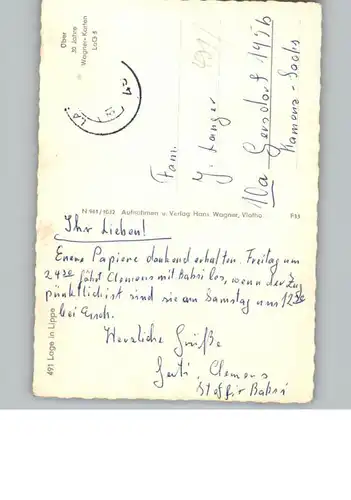 Über
30 Jahre
Wagner-Karten
LaO 5
Fam.
J. Langer
10a Gersdorf 145b
Kamenz - Sachs
N 941/1032 Aufnahmen u. Verlag Hans Wagner, Vlotho F13
491 Lage in Lippe
Ihr Lieben!
Euere Papiere dankend erhalten. Freitag um
fährt Clemens mit Babsi los, wenn der Zug
pünktlich ist sind sie am Samstag um
bei Euch.
Herzliche Grüße
Gerti, Clemens
Babsi